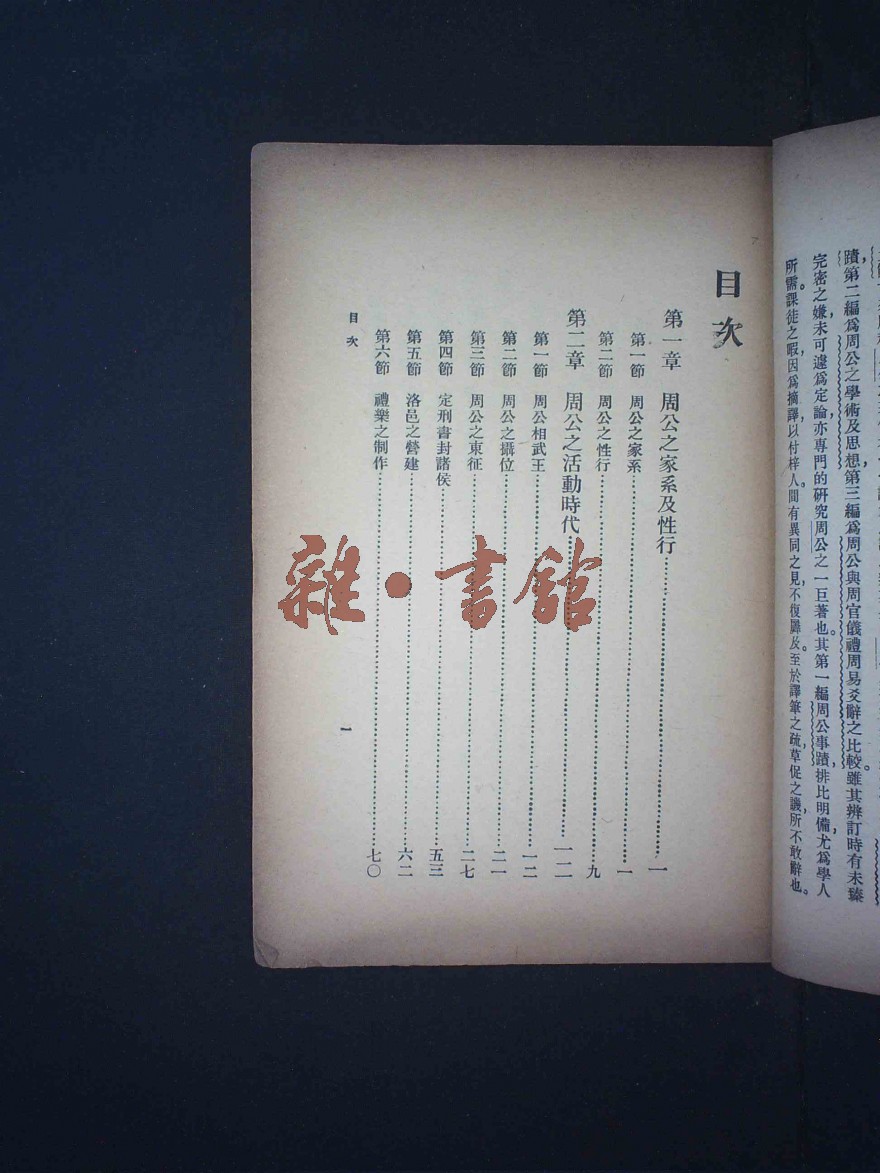 蹟第二編爲周公之學術及思想第三編爲周公與周官儀禮周易爻辭之比較。雖其辨訂時有未臻
完密之嫌,未可遽爲定論,亦專門的研究周公之一巨著也。其第一編周公事蹟,排比明備,尤爲學人
所需。課徒之暇,因爲摘譯,以付梓人。間有異同之見,不復羼及。至於譯筆之疏,草促之譏,所不敢辭也。
目次
第一章 周公之家系及性行……一
第一節 周公之家系……一
第二節 周公之性行……九
第二章 周公之活動時代……一二
第一節 周公相武王……一二
第二節 周公之攝位……二一
第三節 周公之東征……二七
第四節 定刑書封諸侯……五三
第五節 洛邑之營建……六二
第六節 禮樂之制作……七〇
目次
一
雜·書館